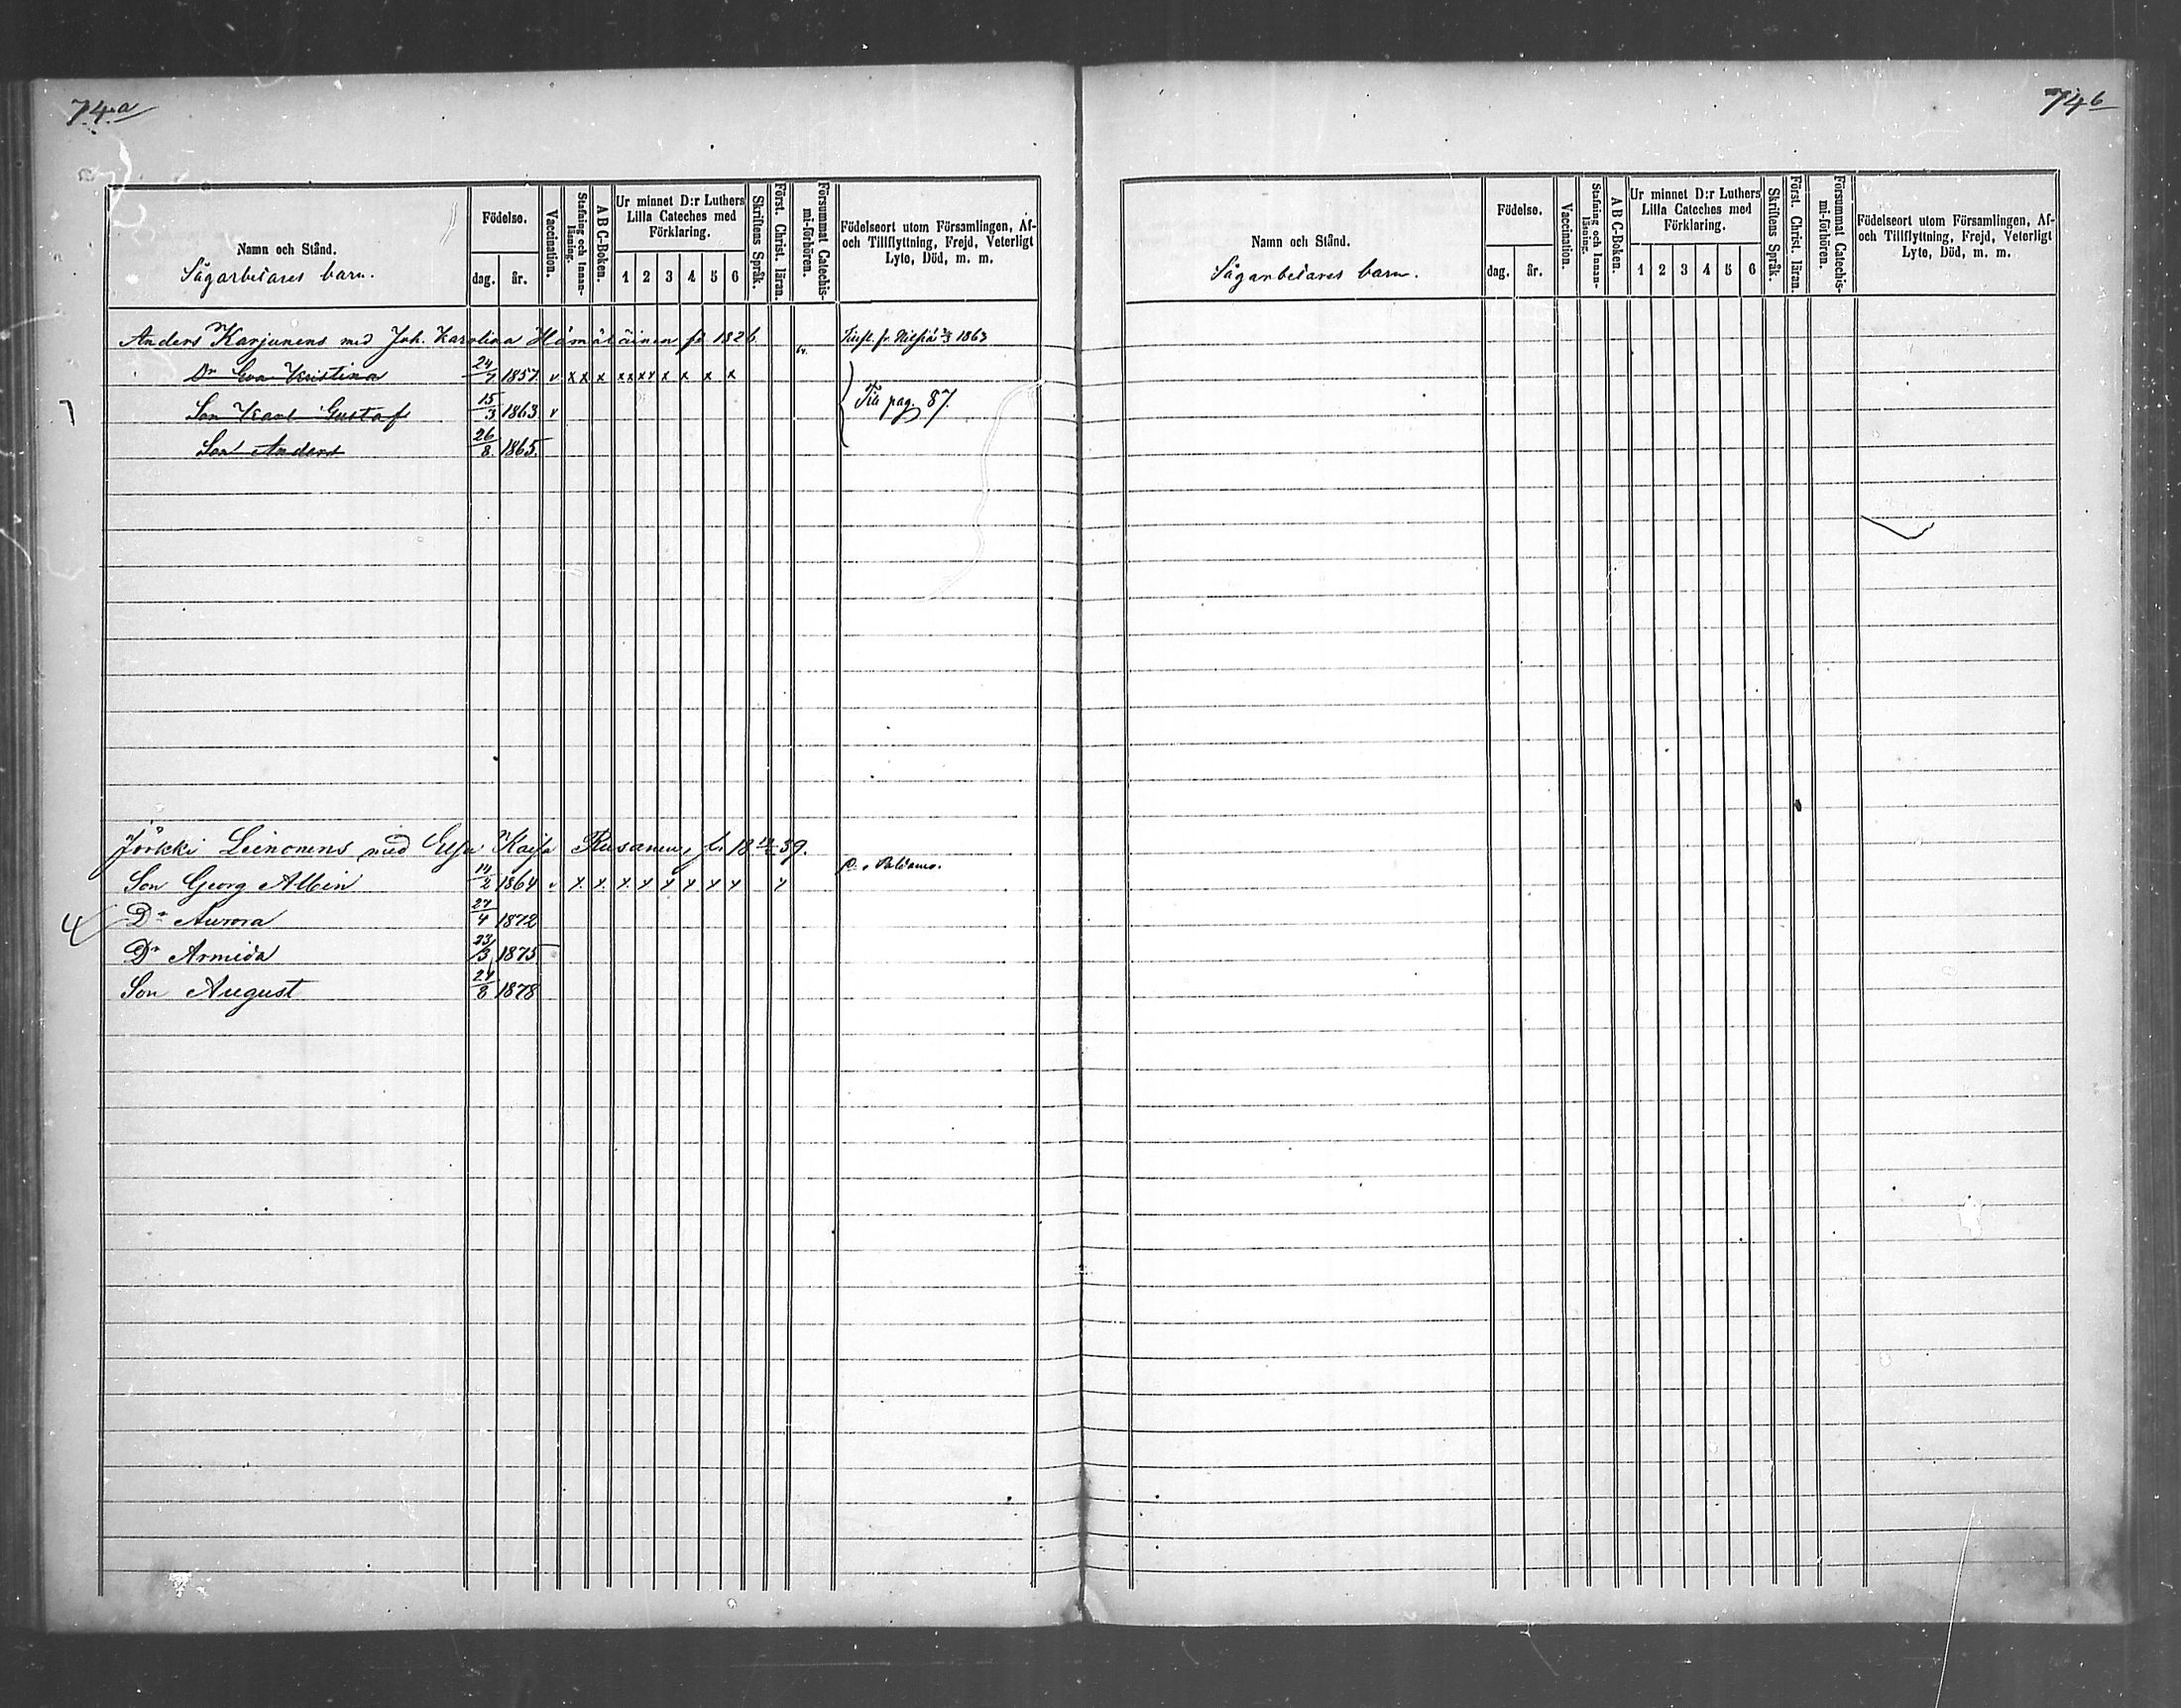 74.a
Namn och Stånd.
Sågarbetares barn.
Födelse.
dag.
år.
Vaccination.
Stafning och Innan-
läsning.
A B C-Boken.
Ur minnet D:r Luthers
Lilla Cateches med
Förklaring.
1 2 3 4 5 6
Skriftens Språk.
Först. Christ. läran.
Försummat Catechis-
mi-förhören.
Födelseort utom Församlingen, Af-
och Tillflyttning, Frejd, Veterligt
Lyte, Död, m. m.
Anders Karjunens med Joh. Karolina Hämäläinen fö 1826. fr. Nilsiä 1863
Dr Eva Kristina 24/7 1857 v x x x x x x x x x x x
7 Son Karl Gustaf 15/3 1863 v Till pag. 87.
Son Anders 26/8 1865
Jörkki Leinonens med Elsa Kaisa Rusanen, f. 18 39.
Son Georg Albin 14/2 1864 v x x x x x x x x x
4 Dr Aurora 27/4 1872
Dr Armida 23/3 1875
Son August 27/8 1878
74b
Namn och Stånd.
Sågarbetares barn.
Födelse.
dag.
år.
Vaccination.
Stafning och Innan-
läsning.
A B C-Boken.
Ur minnet D:r Luthers
Lilla Cateches med
Förklaring.
1 2 3 4 5 6
Skriftens Språk.
Först. Christ. läran.
Försummat Catechis-
mi-förhören.
Födelseort utom Församlingen, Af-
och Tillflyttning, Frejd, Veterligt
Lyte, Död, m. m.